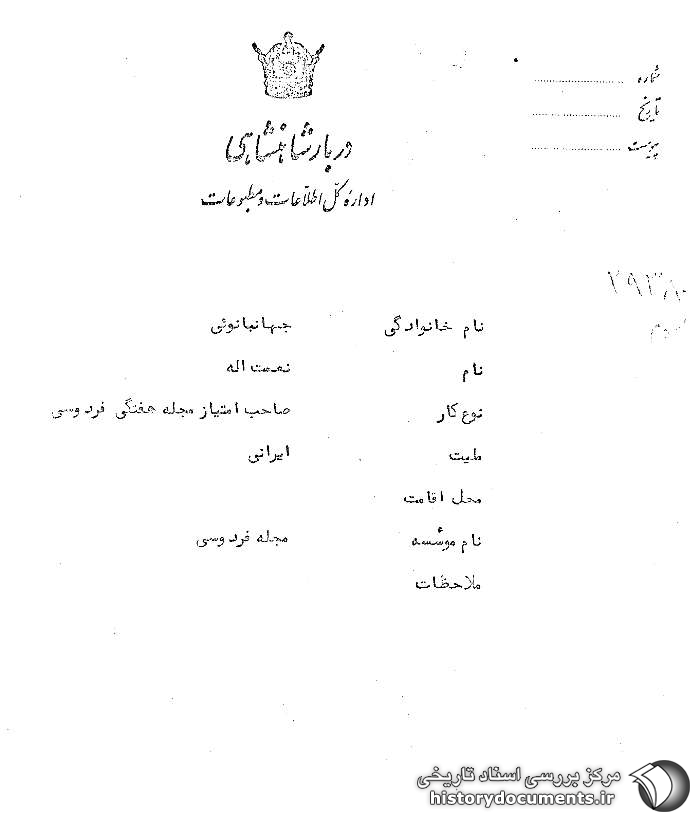 شماره
تاریخ
پیوست
دربار شاهنشاهی
اداره کل اطلاعات و مطبوعات
نام خانوادگی جهانبانوئی
نام نعمت اله
نوع کار صاحب امتیاز مجله هفتگی فردوسی
ملیت ایرانی
محل اقامت
نام موُسسه مجله فردوسی
ملاحظات
مرکز بررسی اسناد تاریخی
historydocuments.ir